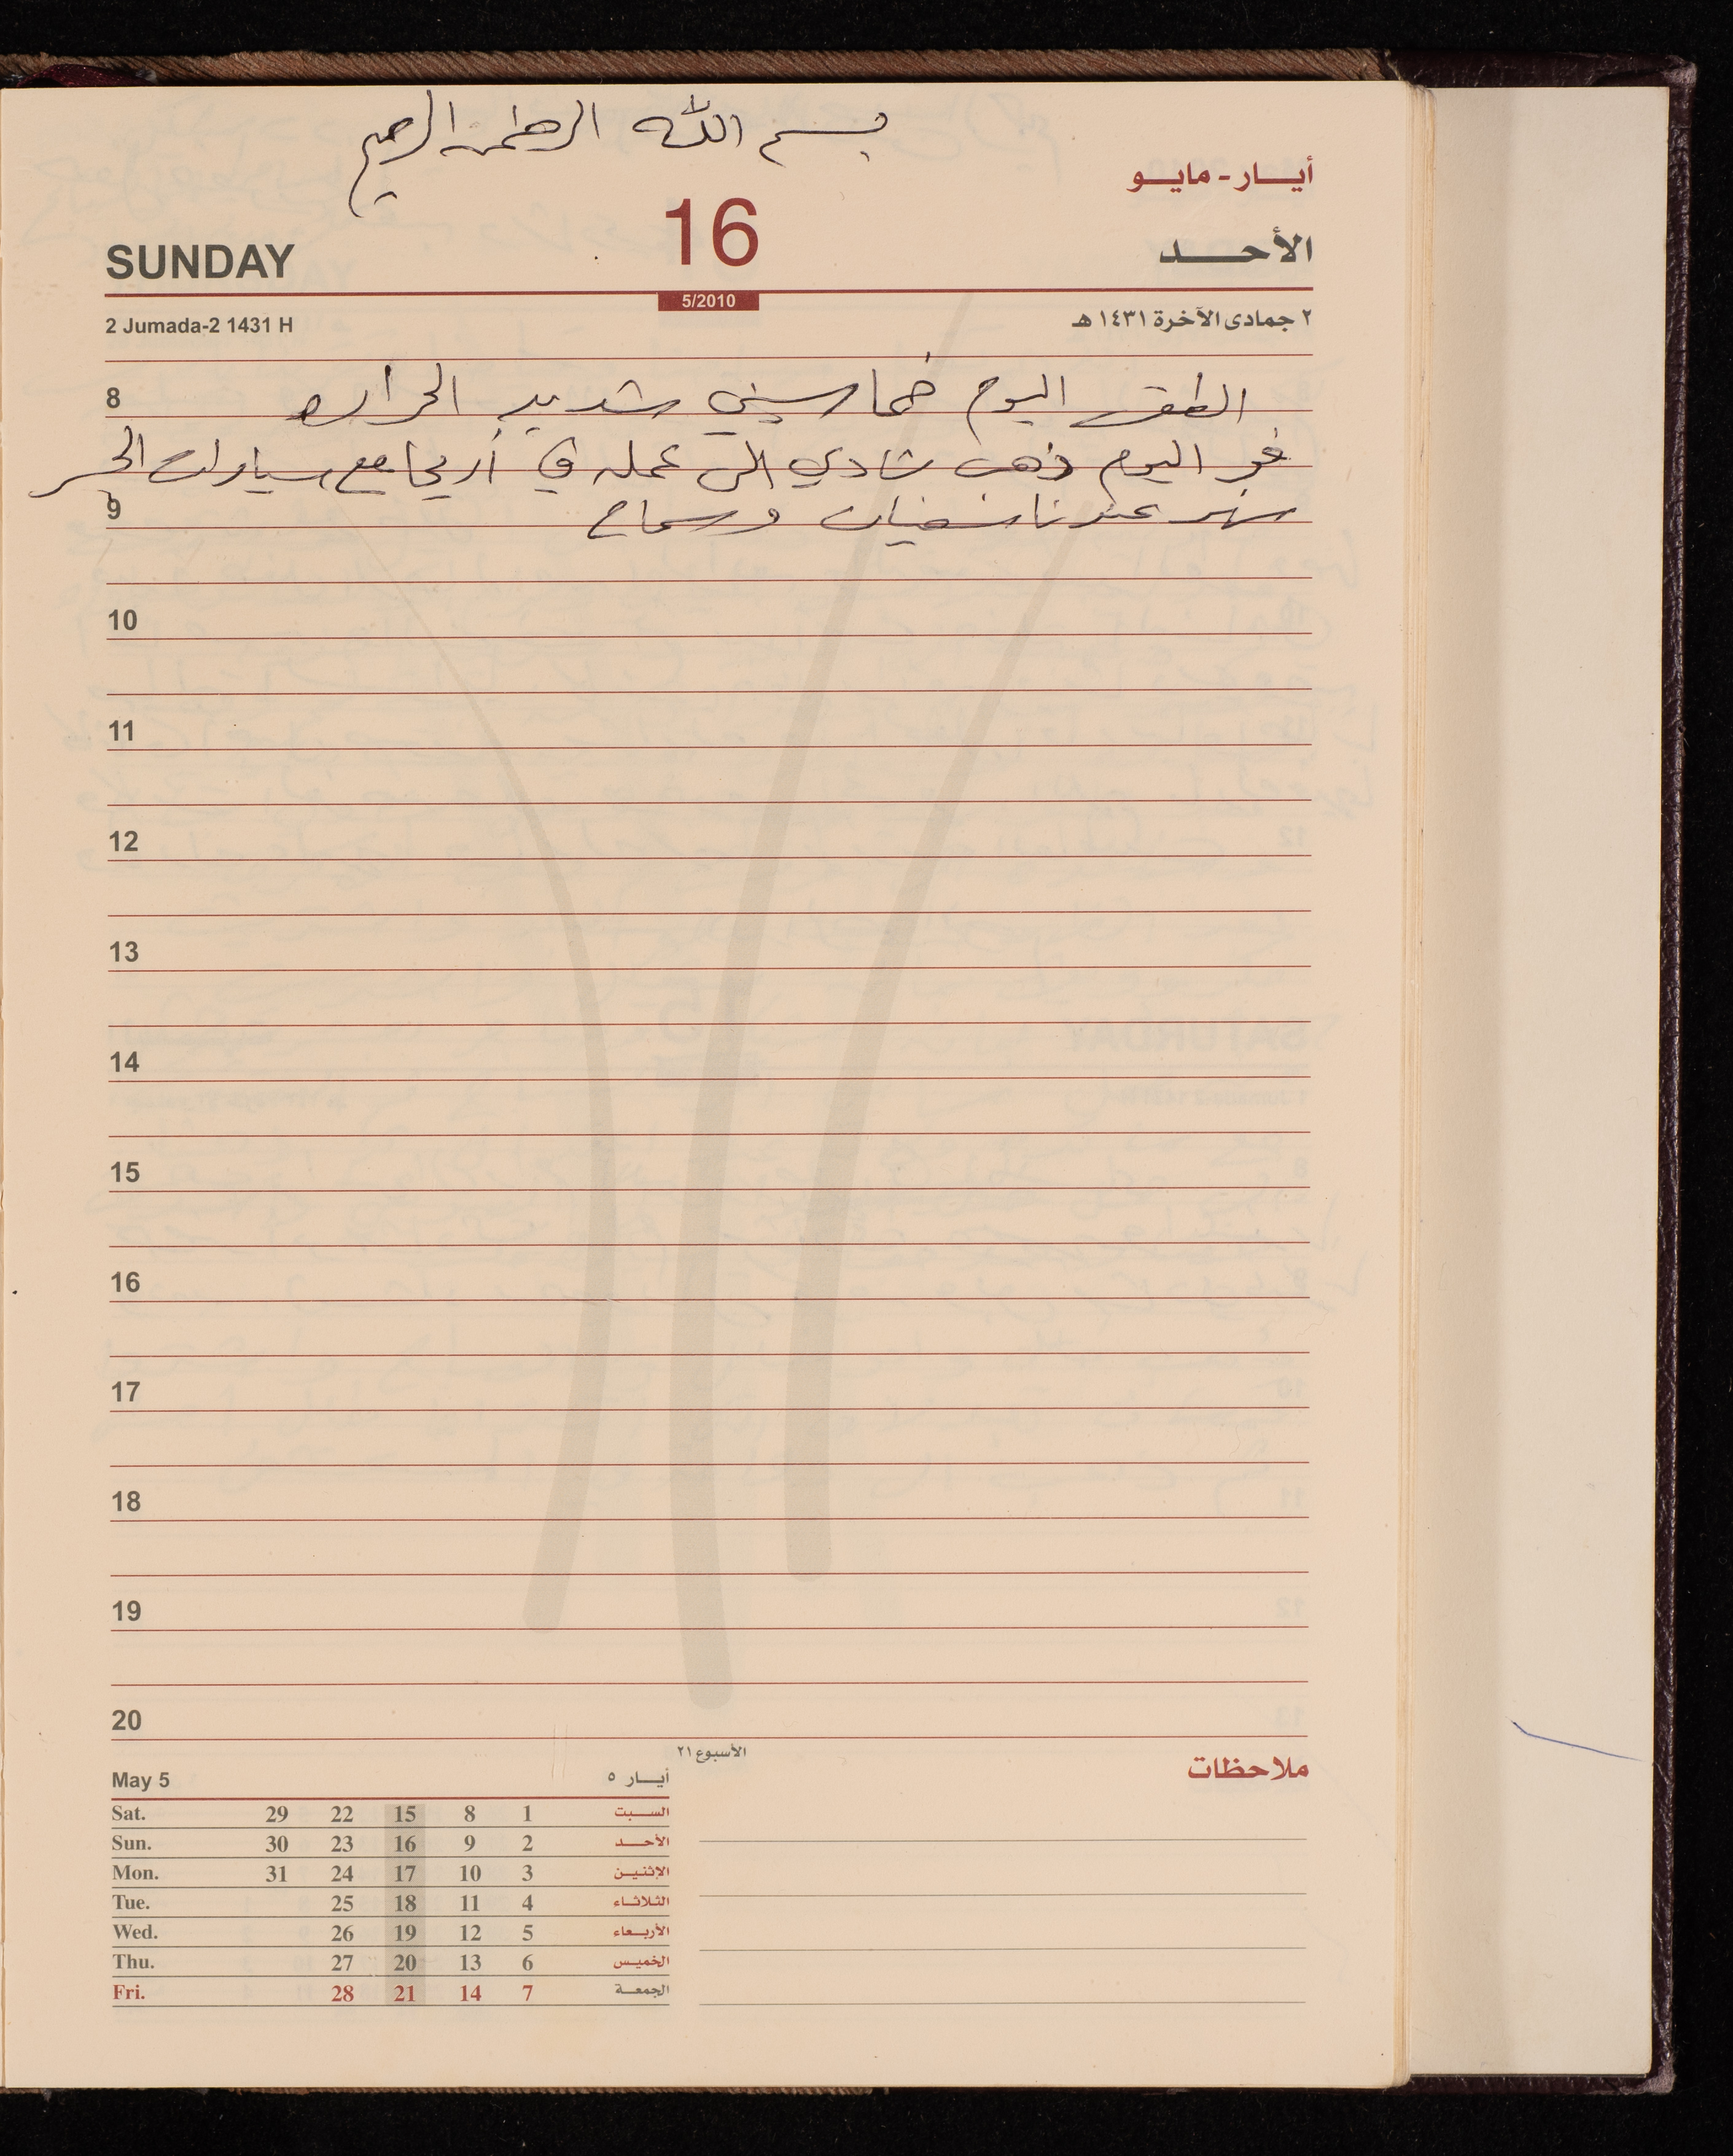 بسم الله الرحمن الرحيم
أيــار - مايــو
16
SUNDAY
الأحــد
5/2010
2 Jumada-2 1431 H
٢ جمادى الآخرة ١٤٣١ هـ
8
الطقس اليوم خماسيني شديد الحرارة
في اليوم ذهب شادي الى عمله في أريحا مع سيارات الجسر
9
سهر عندنا سفيان وسماح
10
11
12
13
14
15
16
17
18
19
20
الأسبوع ٢١
ملاحظات
May 5 أيــار ٥
Sat. 29 22 15 8 1 السبت
Sun. 30 23 16 9 2 الأحد
Mon. 31 24 17 10 3 الإثنين
Tue. 25 18 11 4 الثلاثاء
Wed. 26 19 12 5 الأربعاء
Thu. 27 20 13 6 الخميس
Fri. 28 21 14 7 الجمعة